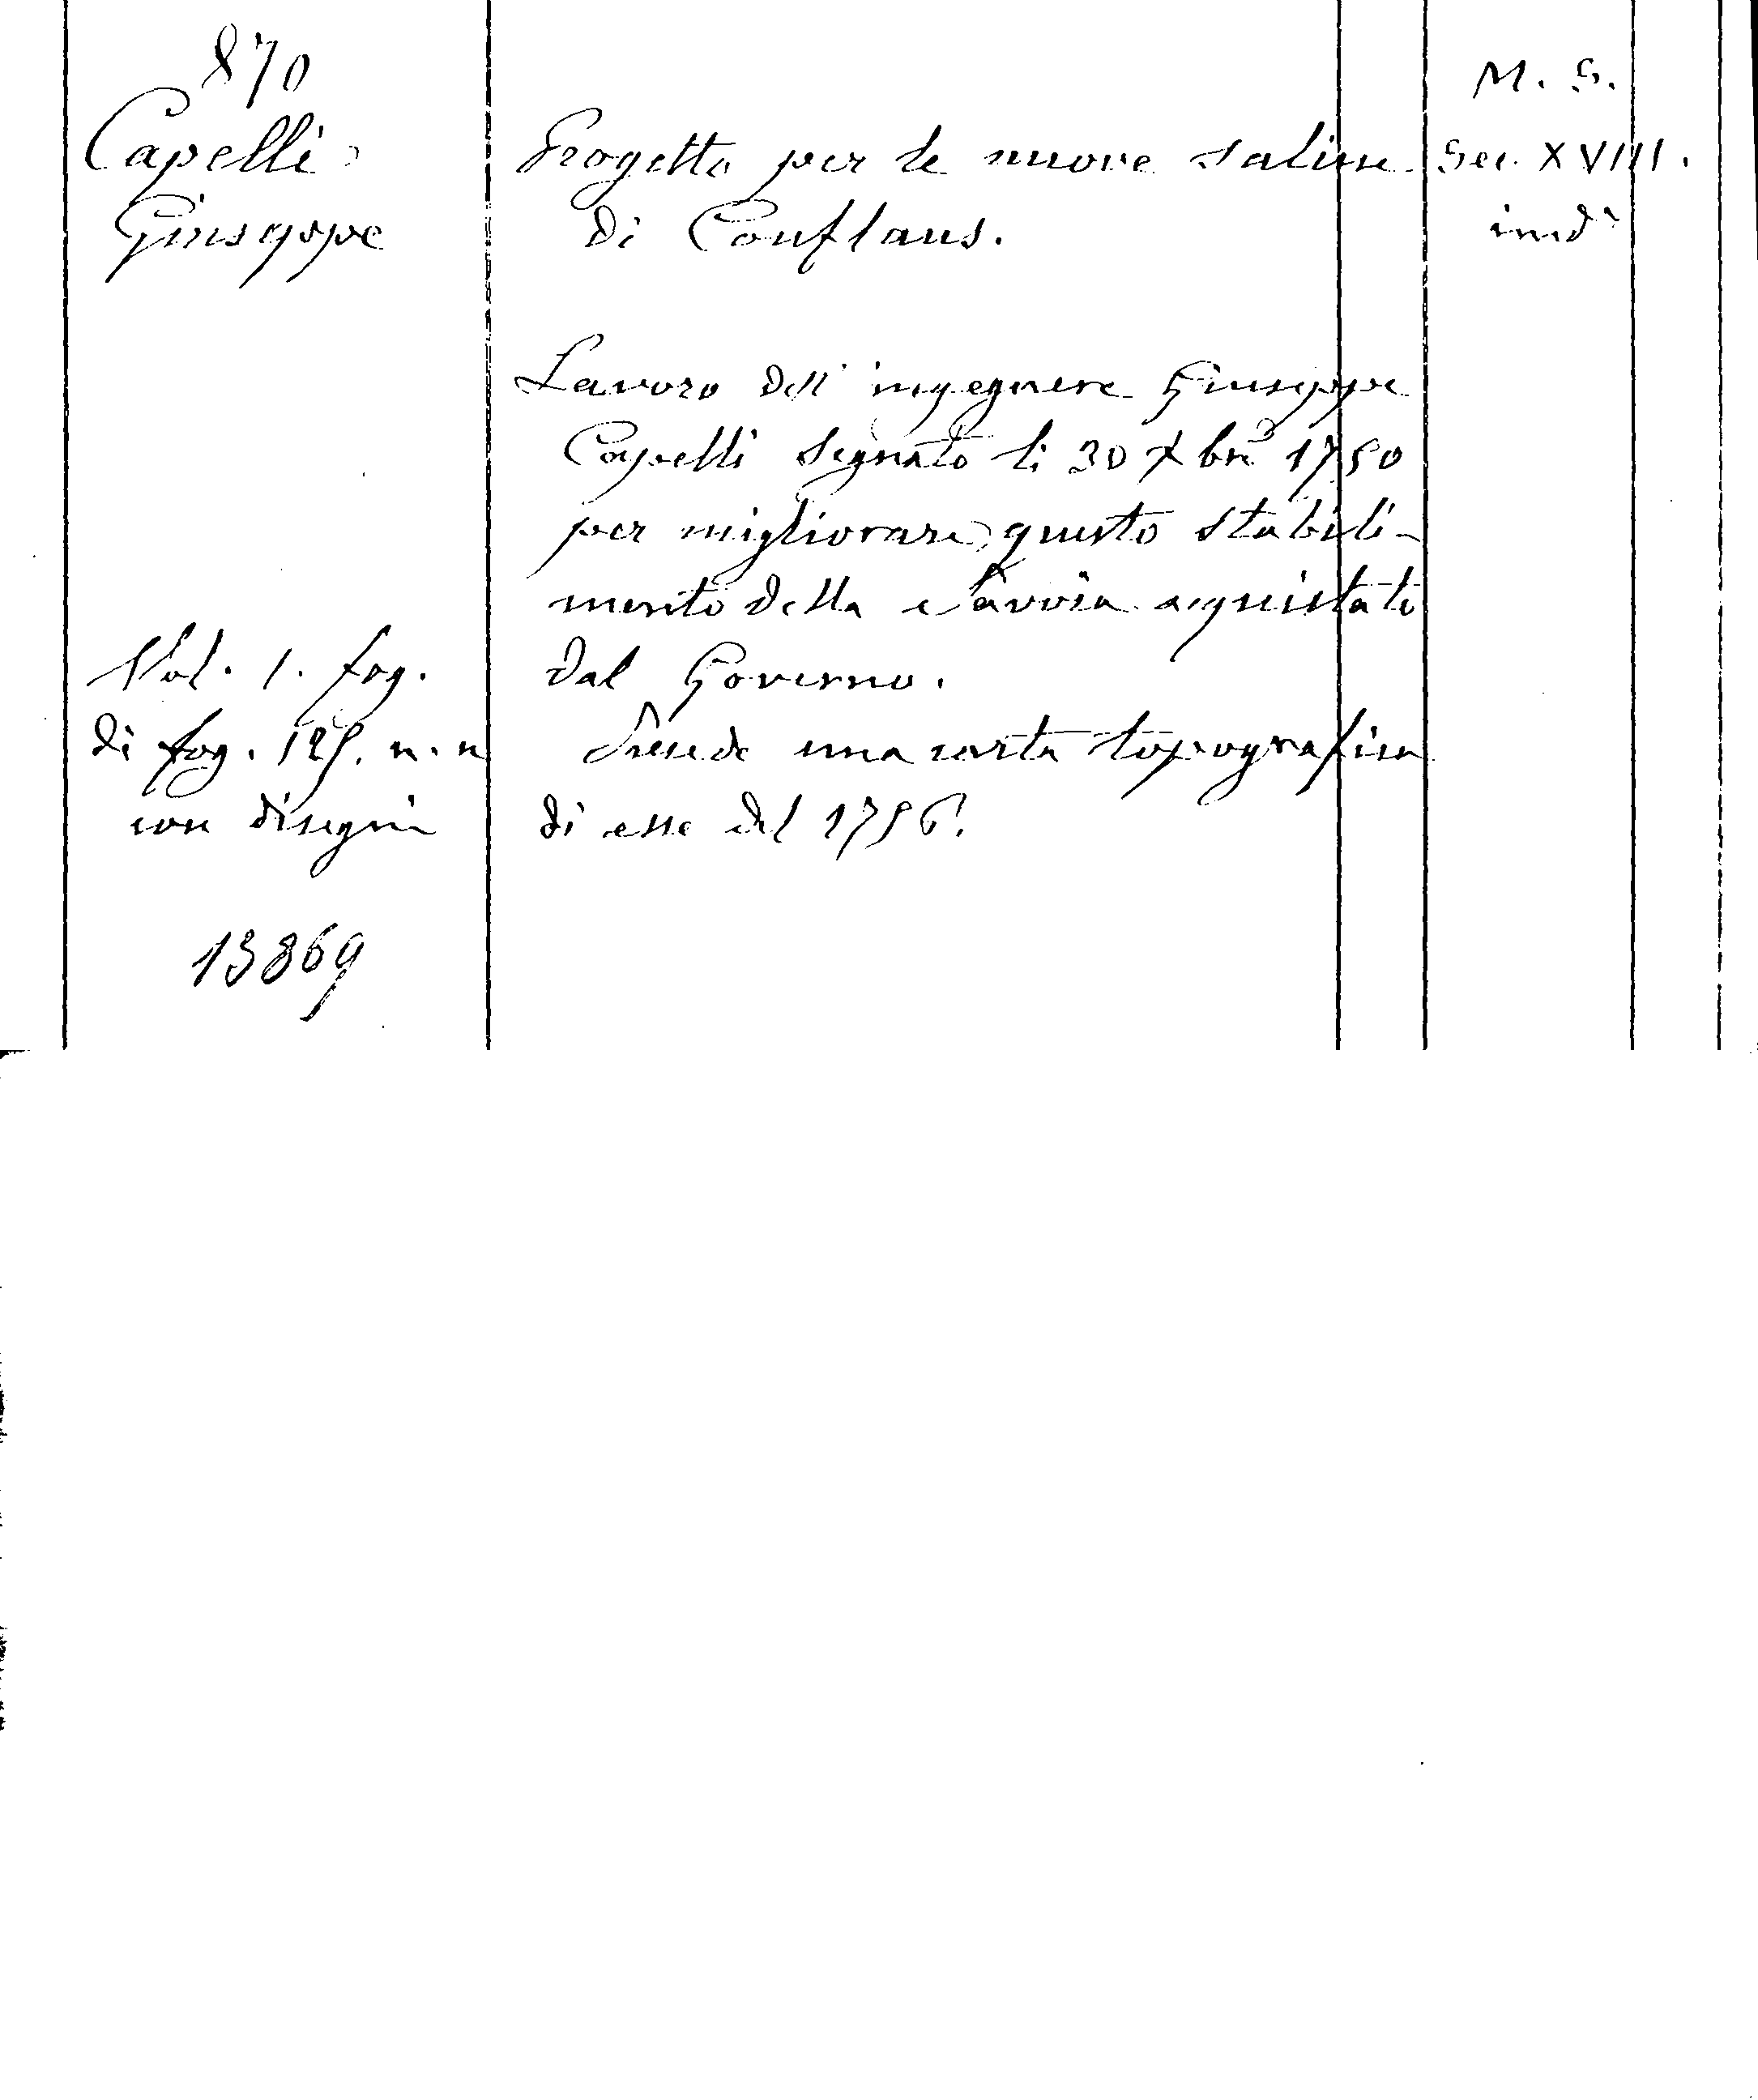 870
Capelli
Giuseppe
Progetto per le nuove saline
di Conflans.
M. S.
Sec. XVIII.
ined°
Lavoro dell'ingegnere Giuseppe
Capelli segnato li 30 Xbre 1750
per migliorare questo stabili-
mento della Savoia acquistato
dal Governo.
Precede una carta topografica
di esse del 1756.
Vol. 1. fog.
di fog. 125. n. n
con disegni
13869